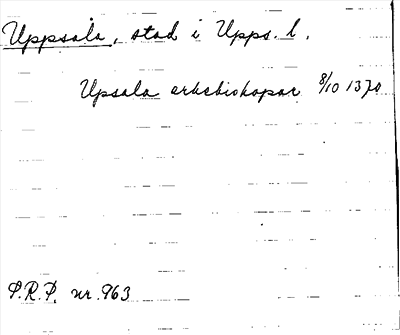 Uppsala, stad i Upps. l.
Upsala erkebiskopar 8/10 1370
S.R.P. nr. 963